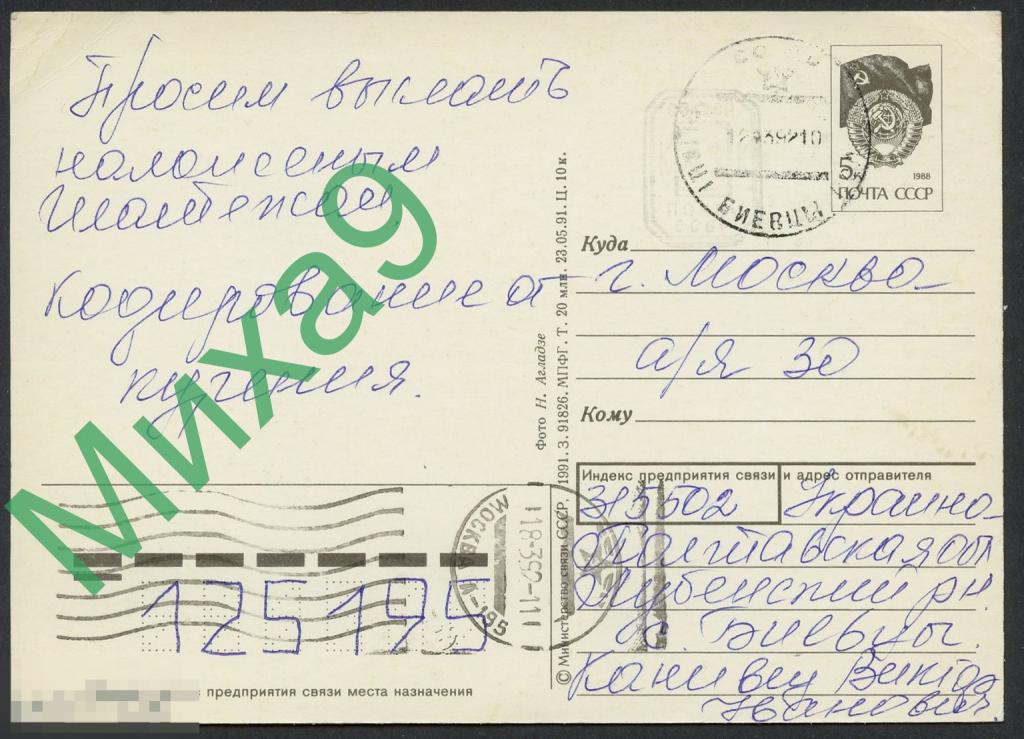 Просим выслать
наложеным
платежом
Кодирование от
курения.
Миха9
12 03 92 10
БИЕВЦЫ
5к
1988
ПОЧТА СССР
Куда
г. Москва
а/я 30
Кому
Фото Н. Агладзе
© Министерство связи СССР. 1991. З. 91826. МПФГ. Т. 20 млн. 23.05.91. Ц. 10 к.
Индекс предприятия связи и адрес отправителя
315502 Украина
Полтавская обл
Лубенский рн.
с. Биевцы.
Канивец
Иванович
МОСКВА А-195
18-3-92-11
125195
предприятия связи места назначения